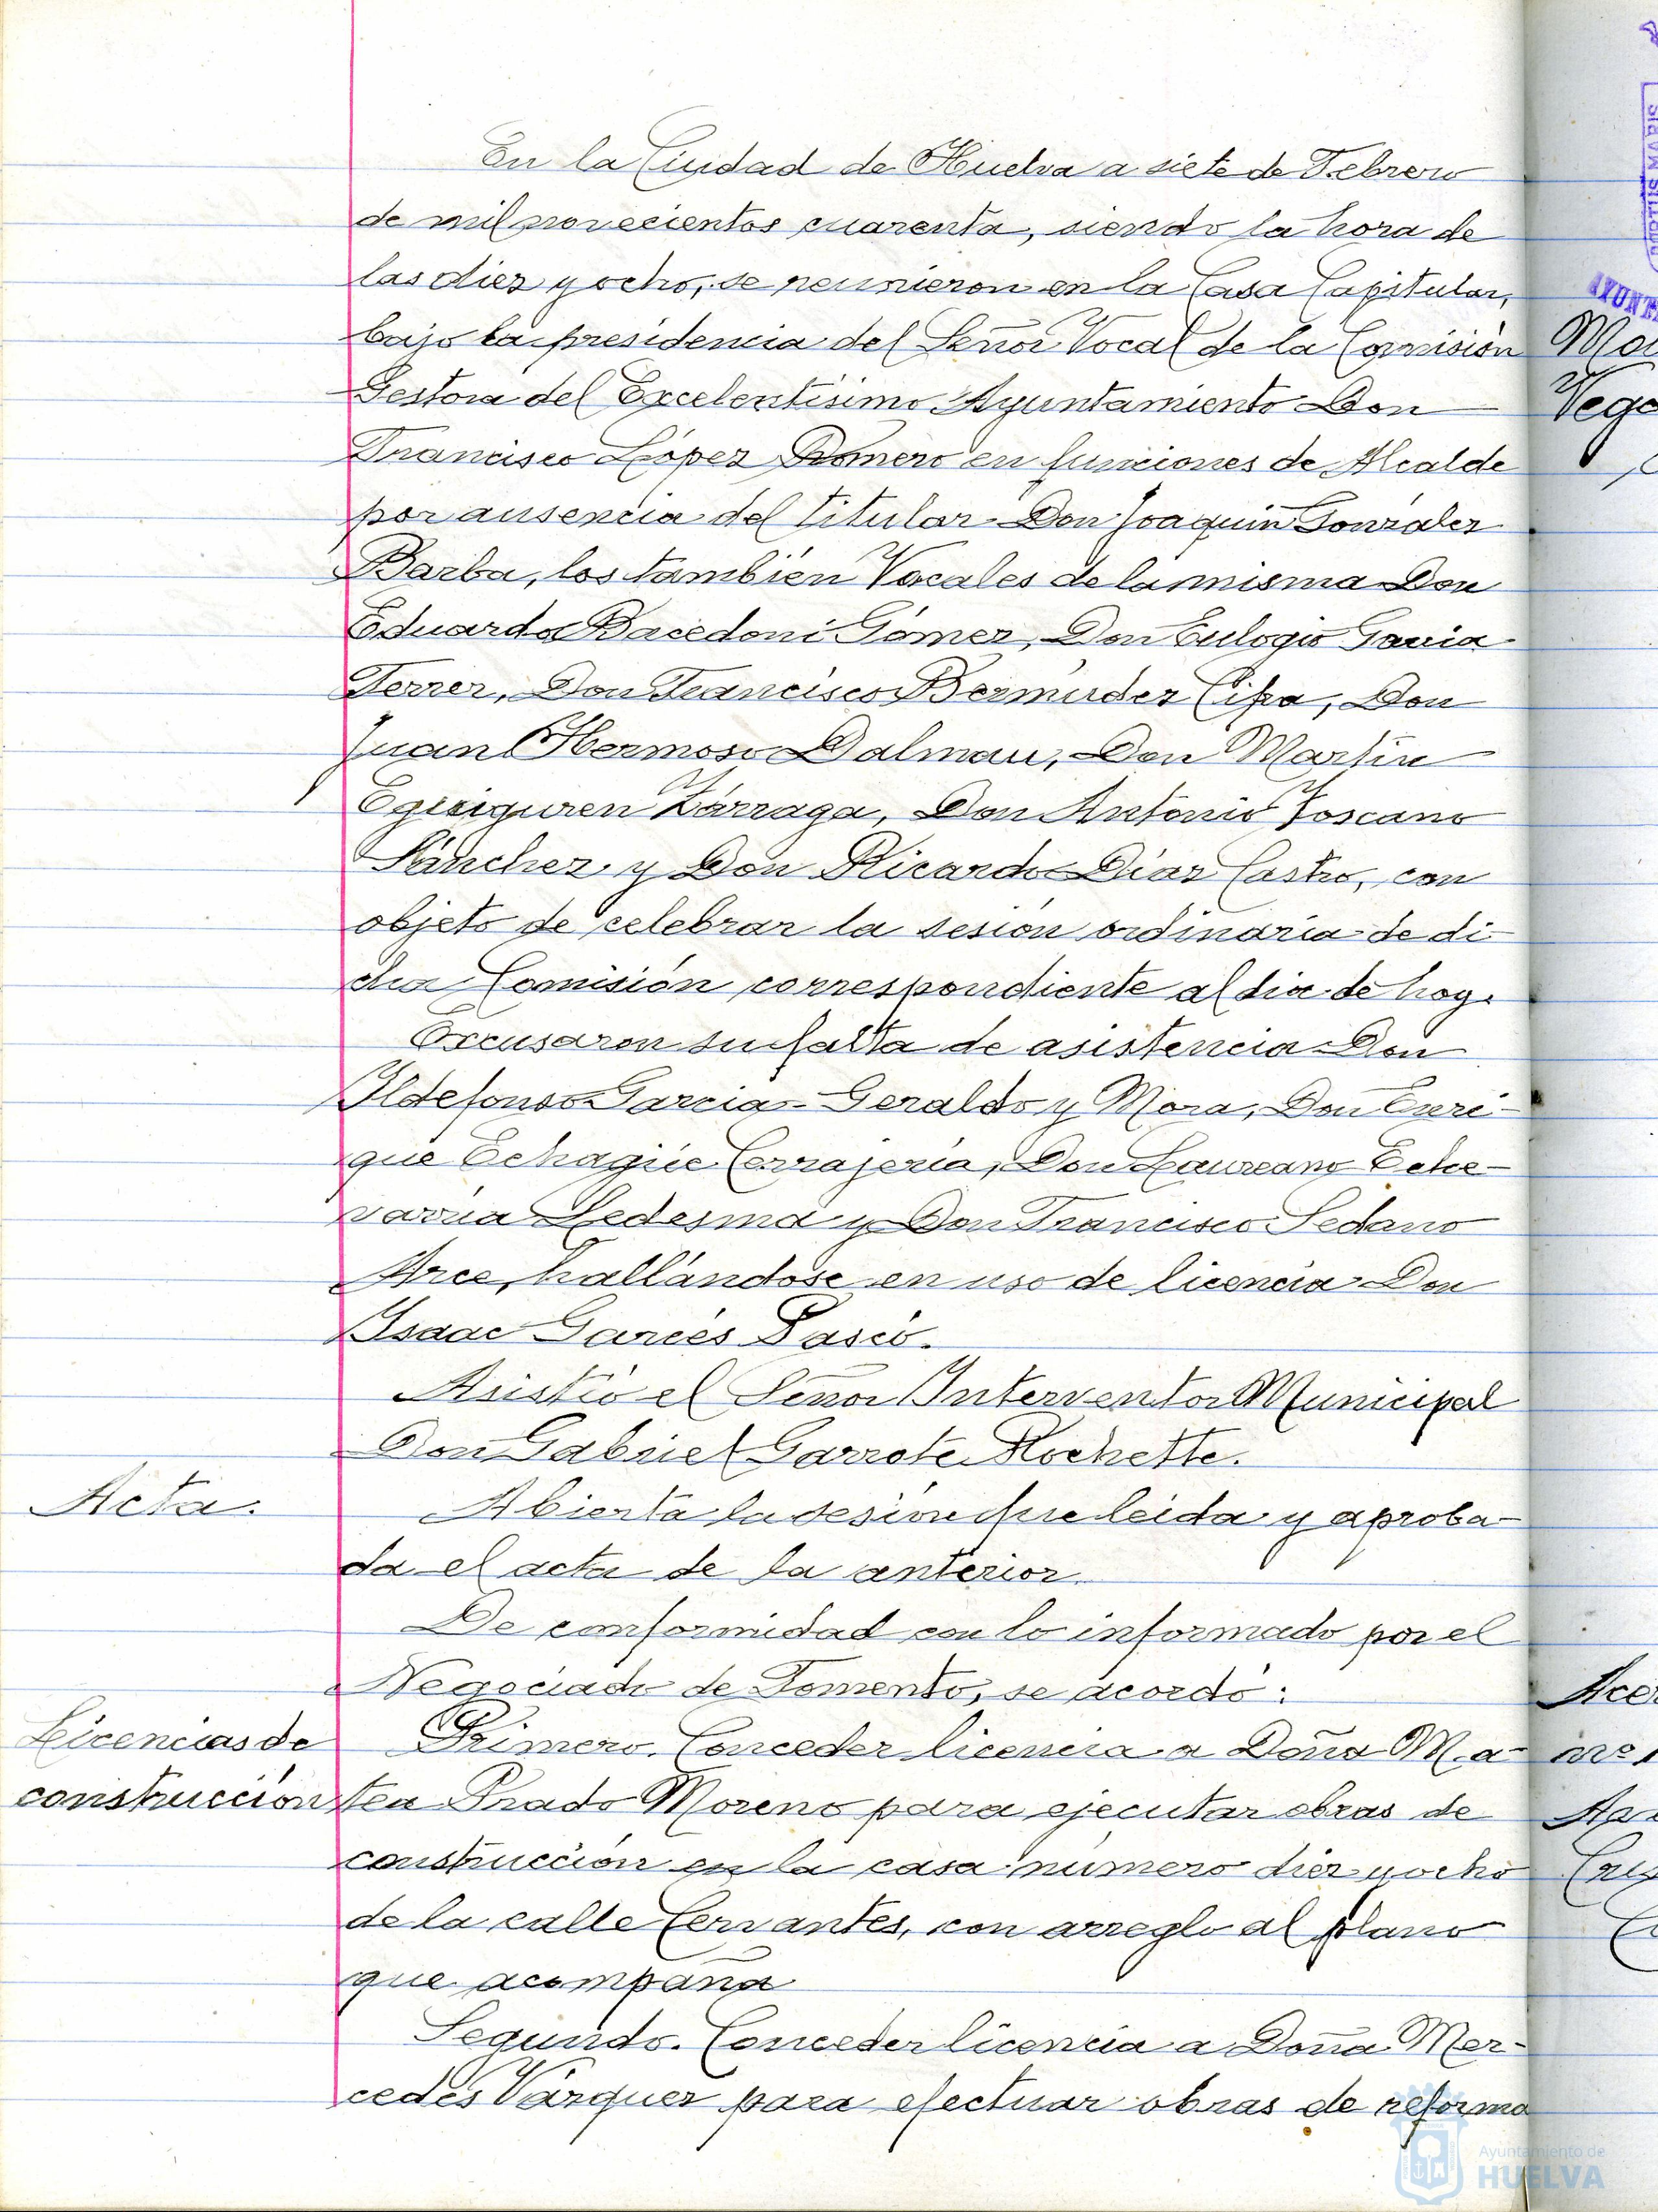 En la Ciudad de Huelva a siete de Febrero
de mil novecientos cuarenta, siendo la hora de
las diez y ocho, se reunieron en la Casa Capitular,
bajo la presidencia del Señor Vocal de la Comisión
Gestora del Excelentísimo Ayuntamiento Don
Francisco López Romero en funciones de Alcalde
por ausencia del titular Don Joaquín González
Barba, los también Vocales de la misma Don
Eduardo Bacedoni Gómez, Don Eulogio
Ferrer, Don Francisco Bermúdez Cipa, Don
Juan Hermoso Dalmau, Don Martín
Eguiguren Zárraga, Don Antonio Toscano
Sánchez y Don Ricardo Díaz Castro, con
objeto de celebrar la sesión ordinaria de di-
cha Comisión correspondiente al día de hoy.
Excusaron su falta de asistencia Don
Ildefonso García-Geraldo y Mora, Don Enri-
que Echagüe Cerrajería, Don Laureano Eche-
varría Ledesma y Don Francisco Sedano
Arce, hallándose en uso de licencia Don
Isaac Garcés
Asistió el Señor Interventor Municipal
Don Gabriel Garrote Rochette.
Acta.
Abierta la sesión fue leída y aproba-
da el acta de la anterior.
De conformidad con lo informado por el
Negociado de Fomento, se acordó:
Licencias de
construcción
Primero. Conceder licencia a Doña Ma-
tea Prado Moreno para ejecutar obras de
construcción en la casa número diez y ocho
de la calle Cervantes, con arreglo al plano
que acompaña
Segundo. Conceder licencia a Doña Mer-
cedes Vázquez para efectuar obras de reforma
Ayuntamiento de
HUELVA